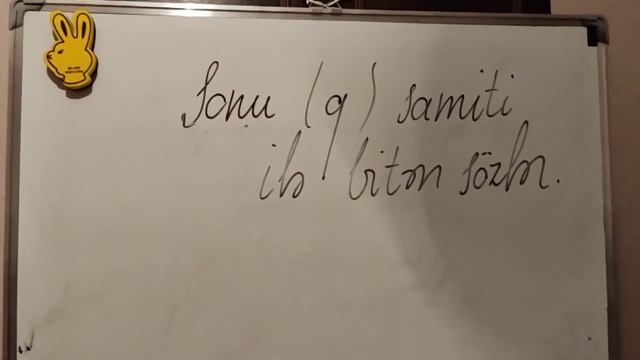 Sonu (q) samiti
ilə bitən sözlər.